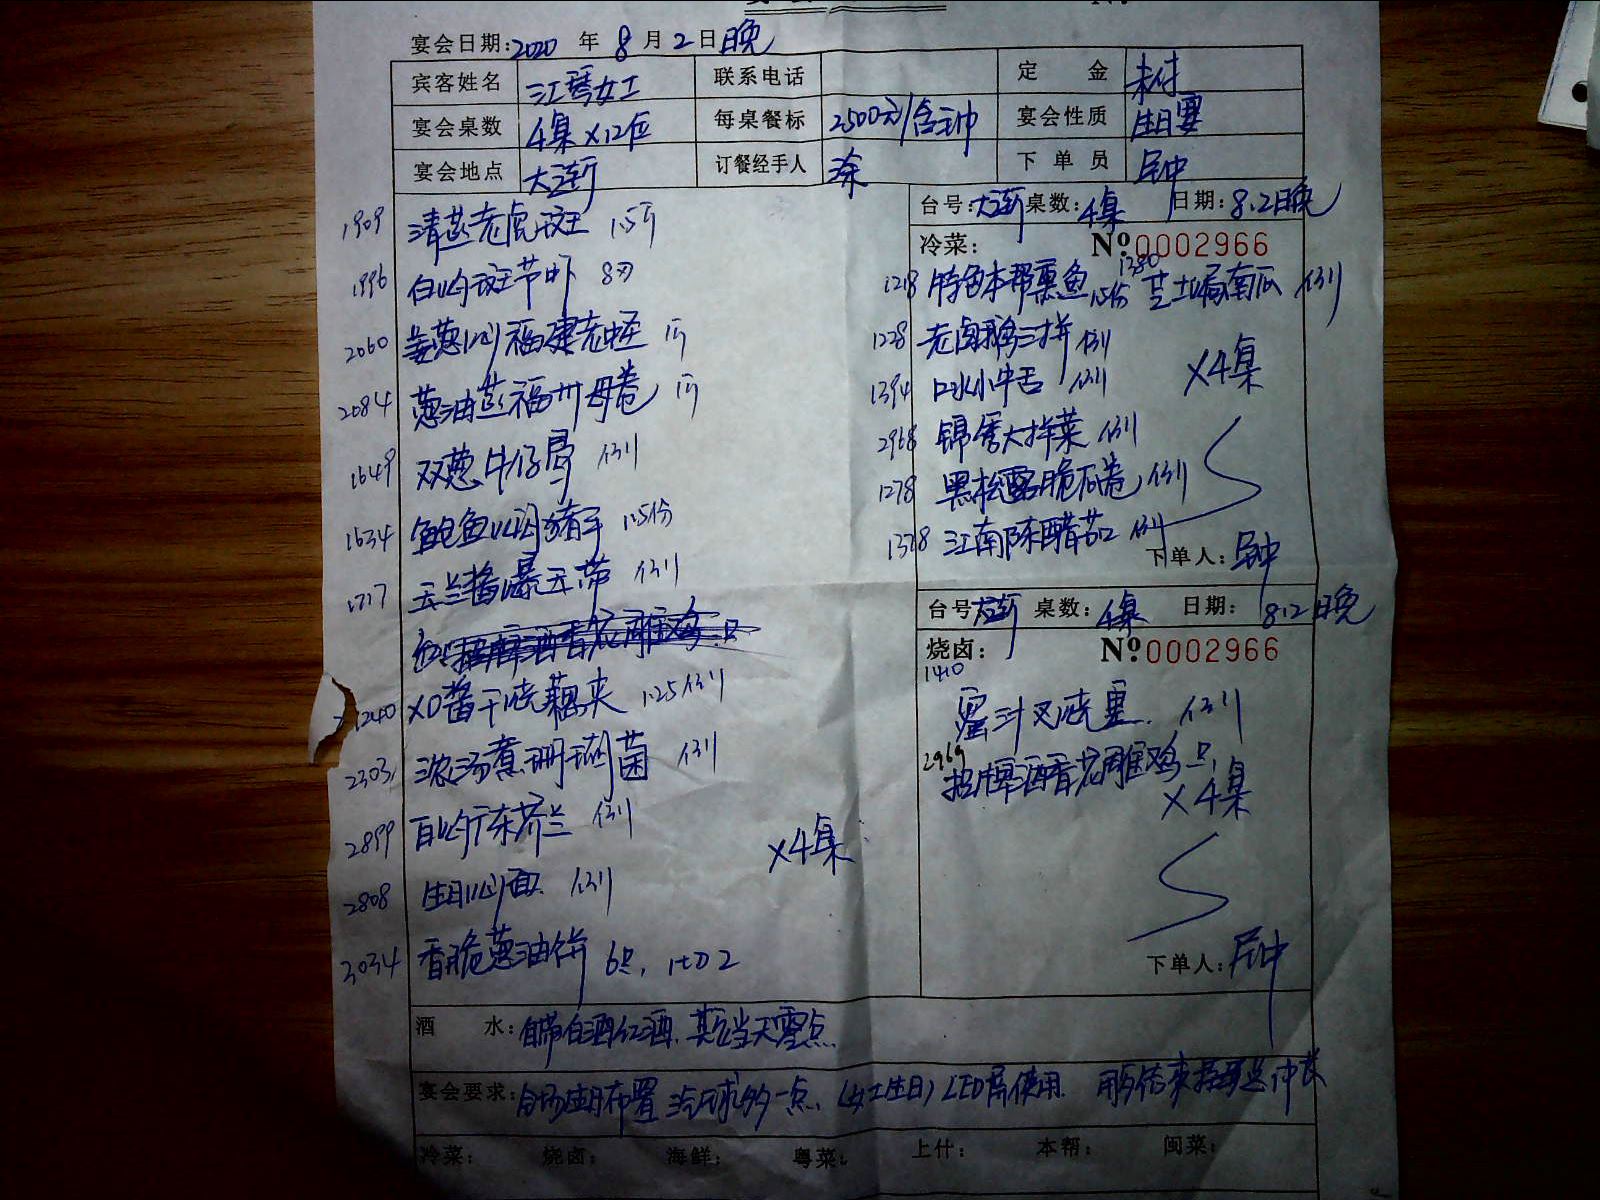 宴会日期:2020 年 8 月 2 日晚
宾客姓名 江琴女士 联系电话 定 金 未付
宴会桌数 4桌×12位 每桌餐标 2500元/含主冲 宴会性质 生日宴
宴会地点 大连厅 订餐经手人 涂 下单员
1909 清蒸老虎斑 1.5斤
1996 白灼斑节虾 8两
2060 姜葱焗福建老蛏 1斤
2084 葱油蒸福州母卷 1斤
1649 双葱牛仔骨 例
1634 鲍鱼焖猪手 1.5份
1717 玉兰酱爆玉带 例
招牌酒香花雕鸡 1只
1240 XO酱干烧藕夹 1.25例
2303 浓汤煮珊瑚菌 例
2899 白灼广东芥兰 例
2808 生日面 例
3034 香脆葱油饼 6只, 1切2
×4桌
台号: 桌数:4桌 日期:8.2日晚
冷菜: Nº0002966
1218 特色本帮熏鱼 1.5份 1380 芝士焗南瓜 例
1228 老卤鹅三拼 例
1394 口水小牛舌 例
×4桌
2968 锦秀大拌菜 例
1278 黑松露脆石卷 例
1328 江南陈醋茄 例
下单人:
台号: 桌数:4桌 日期: 8.2日晚
烧卤: Nº0002966
1410
蜜汁叉烧皇. 例
2969
招牌酒香花雕鸡 1只,
×4桌
下单人:
酒 水: 自带白酒红酒、其它当天零点
宴会要求: 布置 汽球多一点、(女士生日) LED屏使用.
冷菜: 烧卤: 海鲜: 粤菜: 上什: 本帮: 闽菜: